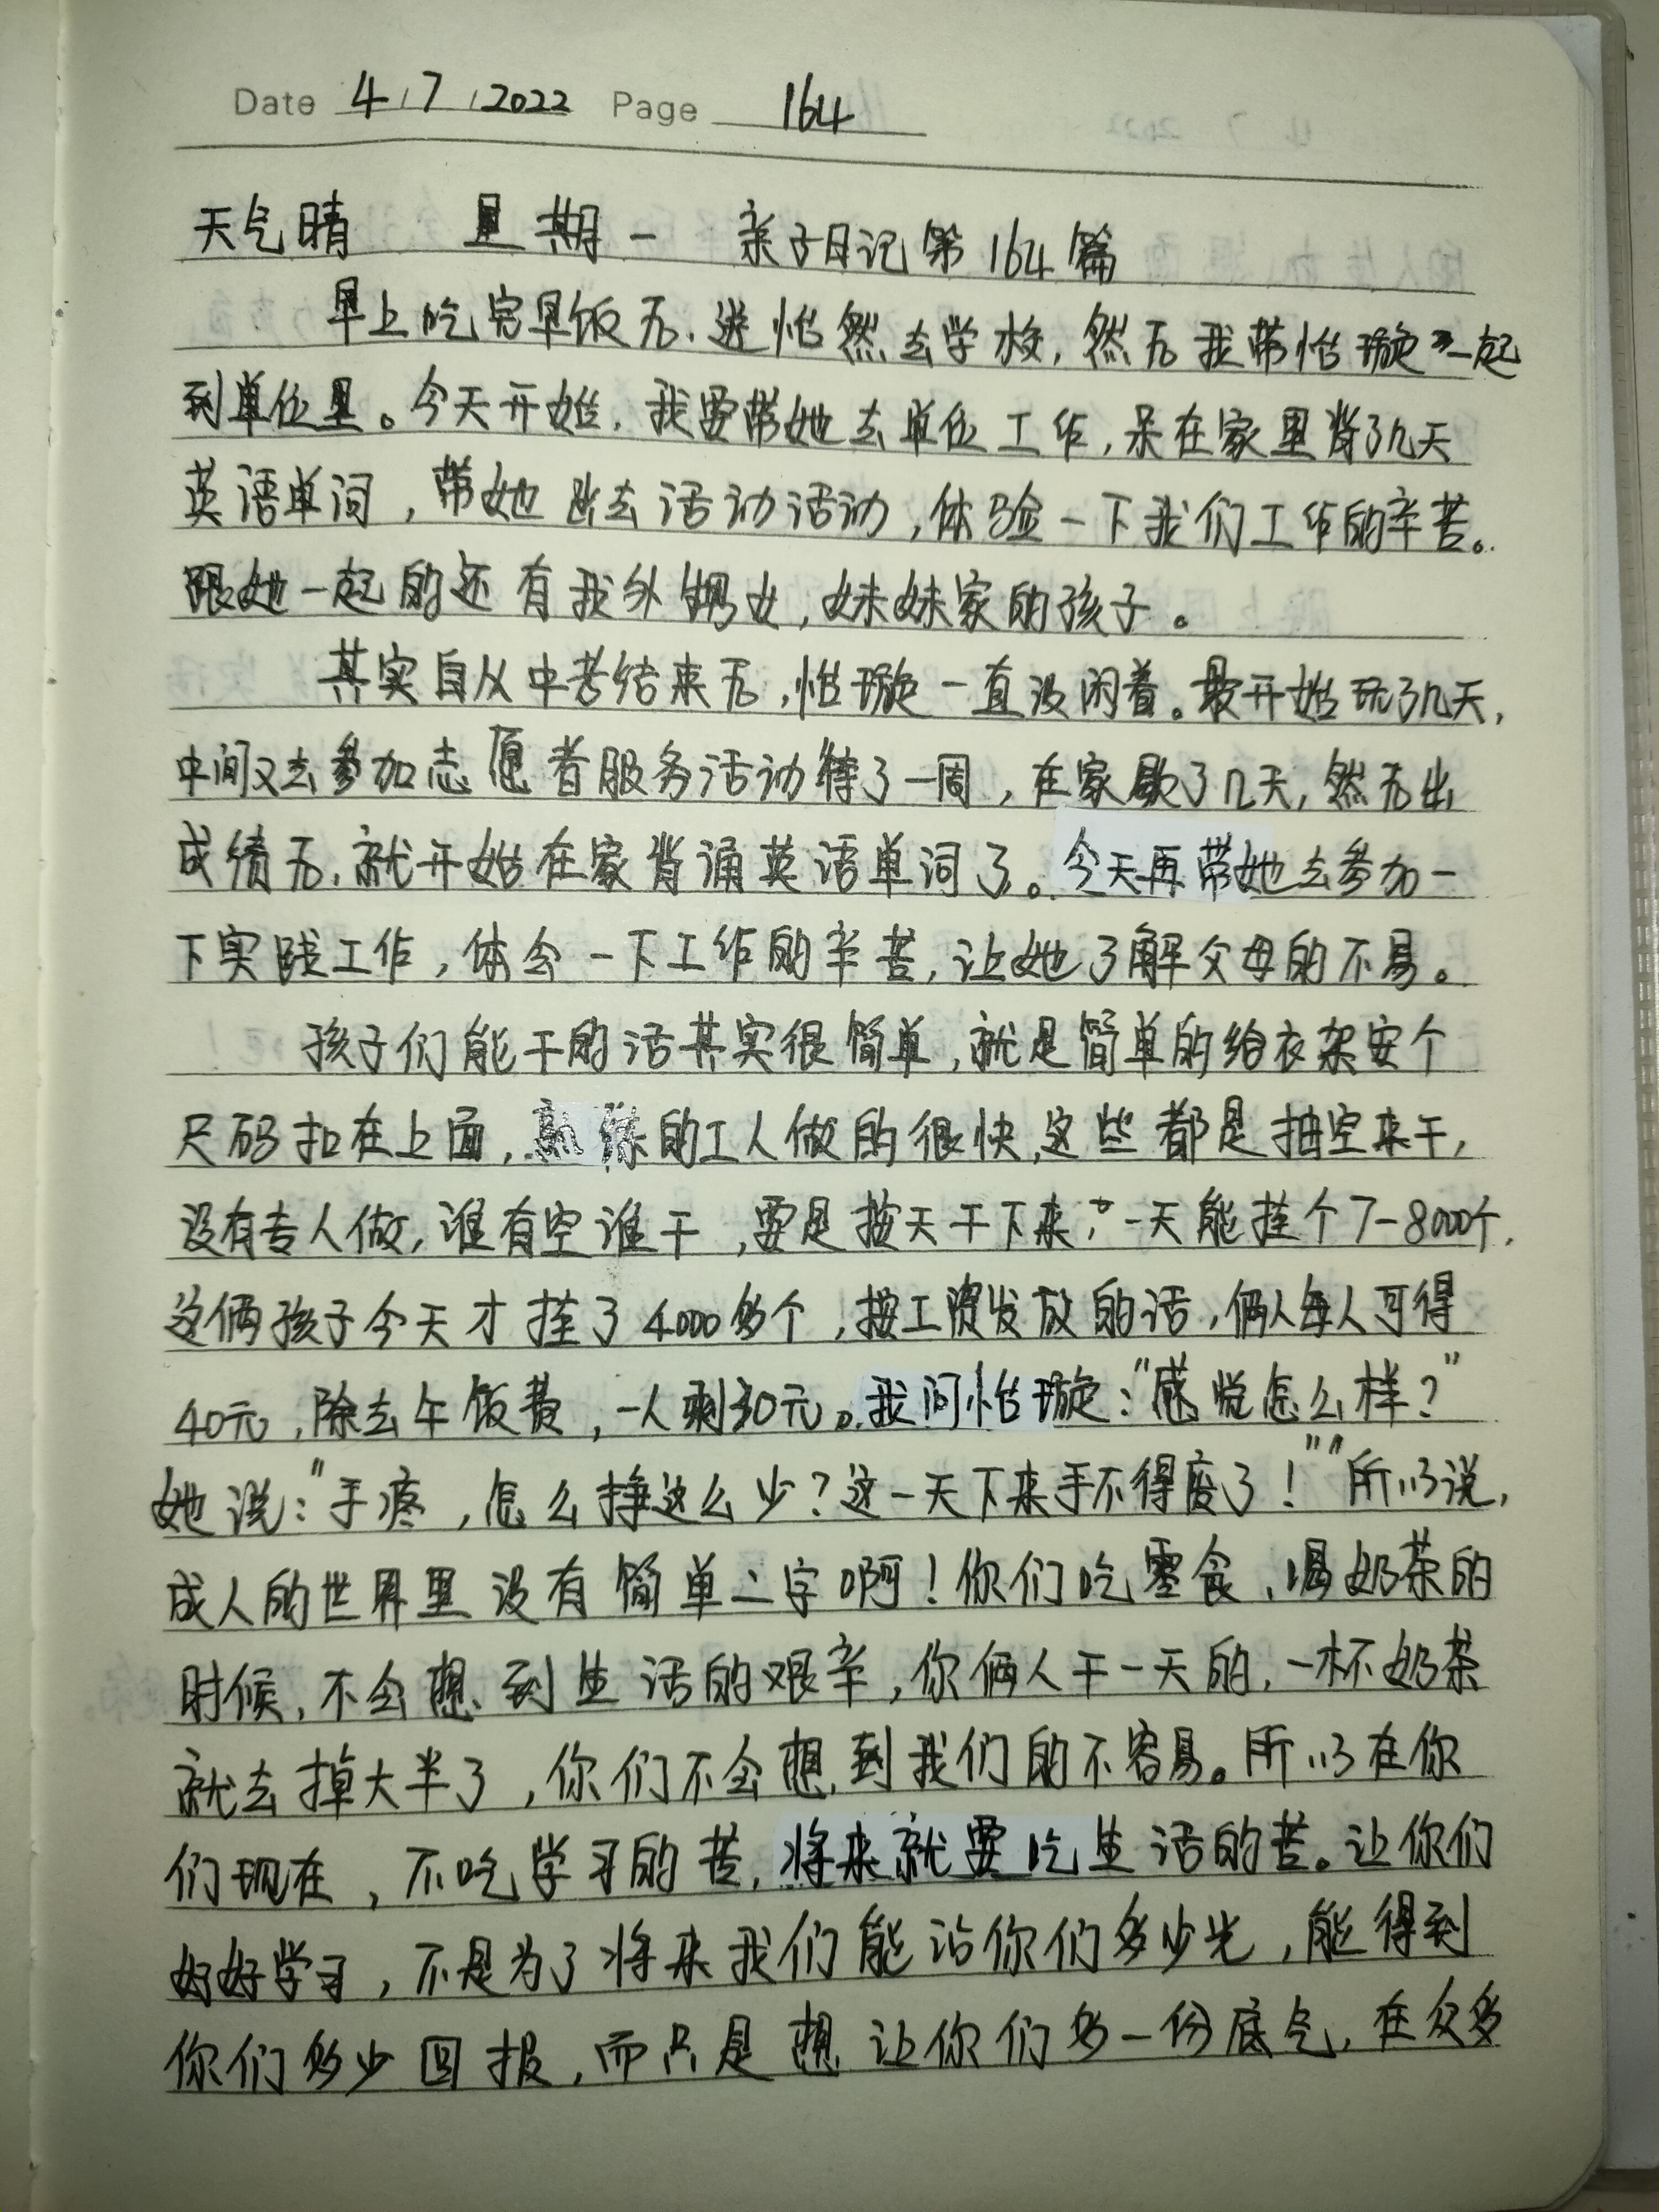 Date 4 / 7 / 2022 Page 164
天气晴 星期一 亲子日记第164篇
早上吃完早饭后，送怡然去学校，然后我带怡璇一起
到单位里。今天开始，我要带她去单位工作，呆在家里背了几天
英语单词，带她出去活动活动，体验一下我们工作的辛苦。
跟她一起的还有我外甥女，妹妹家的孩子。
其实自从中考结束后，怡璇一直没闲着。最开始玩了几天，
中间又去参加志愿者服务活动待了一周，在家歇了几天，然后出
成绩后，就开始在家背诵英语单词了。今天再带她去参加一
下实践工作，体会一下工作的辛苦，让她了解父母的不易。
孩子们能干的活其实很简单，就是简单的给衣架安个
尺码扣在上面，熟练的工人做的很快，这些都是抽空来干，
没有专人做，谁有空谁干，要是按天干下来，一天能挂个7-8000个，
这俩孩子今天才挂了4000多个，按工资发放的话，俩人每人可得
40元，除去午饭费，一人剩30元。我问怡璇：“感觉怎么样？”
她说：“手疼，怎么挣这么少？这一天下来手不得废了！”“所以说，
成人的世界里没有简单二字啊！你们吃零食、喝奶茶的
时候，不会想到生活的艰辛，你俩人干一天的，一杯奶茶
就去掉大半了，你们不会想到我们的不容易。所以在你
们现在，不吃学习的苦，将来就要吃生活的苦。让你们
好好学习，不是为了将来我们能沾你们多少光，能得到
你们多少回报，而只是想让你们多一份底气，在众多